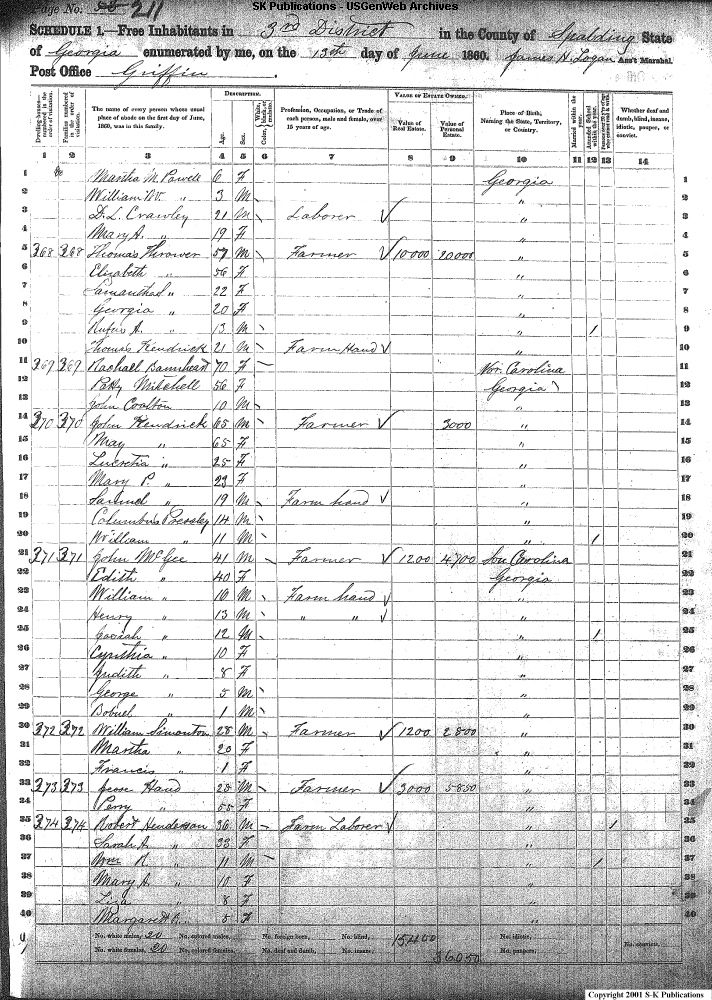 SK Publications - USGenWeb Archives
Page No. 211
SCHEDULE 1.—Free Inhabitants in 3rd District in the County of Spalding State
of Georgia enumerated by me, on the 13th day of June 1860. James H. Logan Ass't Marshal.
Post Office Griffin.
Dwelling-houses—numbered in the order of visitation.
Families numbered in the order of visitation.
The name of every person whose usual place of abode on the first day of June, 1860, was in this family.
DESCRIPTION.
Age.
Sex.
Color, White, black, or mulatto.
Profession, Occupation, or Trade of each person, male and female, over 15 years of age.
VALUE OF ESTATE OWNED.
Value of Real Estate.
Value of Personal Estate.
Place of Birth, Naming the State, Territory, or Country.
Married within the year.
Attended School within the year.
Whether deaf and dumb, blind, insane, idiotic, pauper, or convict.
1 2 3 4 5 6 7 8 9 10 11 12 13 14
1 Martha M. Powell 6 F Georgia 1
2 William W. " 3 M " 2
3 D. L. Crawley 21 M Laborer " 3
4 Mary A. " 19 F " 4
5 368 368 Thomas Thrower 57 M Farmer 10000 20000 " 5
6 Elizabeth " 56 F " 6
7 " 22 F " 7
8 Georgia " 20 F " 8
9 Rufus A. " 13 M " 1 9
10 Thomas Kendrick 21 M Farm Hand " 10
11 Rachael 70 F Nor. Carolina 11
12 Patty Mitchell 56 F Georgia 12
13 John Coalton 10 M " 13
14 370 370 John Kendrick 65 M Farmer 3000 " 14
15 May " 65 F " 15
16 Lucretia " 25 F " 16
17 Mary P. " 23 F " 17
18 Samuel " 19 M Farm hand " 18
19 Columbus Pressley 14 M " 19
20 William " 11 M " 1 20
21 371 371 John McGee 41 M Farmer 1200 4700 Sou Carolina 21
22 Edith " 40 F Georgia 22
23 William " M Farm hand " 23
24 Henry " 13 M " " " 24
25 Josiah " 12 M " 1 25
26 Cynthia " 10 F " 26
27 Judith " 8 F " 27
28 George " 5 M " 28
29 " 1 M " 29
30 372 372 William Simonton 28 M Farmer 1200 2800 " 30
31 Martha " 20 F " 31
32 Francis " 1 F " 32
33 373 373 Jesse Hand 28 M Farmer 3000 5850 " 33
34 Perry " 55 F " 34
35 374 374 Robert Henderson 36 M Farm Laborer " 1 35
36 Sarah A. " 33 F " 36
37 Wm R. " 11 M " 1 37
38 Mary A. " 10 F " 38
39 Liza " 8 F " 39
40 Margarett " 5 F " 40
No. white males, 20 No. colored males, No. foreign born, No. blind, 15400 No. idiotic,
No. white females, 20 No. colored females, No. deaf and dumb, No. insane, 36050 No. paupers, No. convicts,
Copyright 2001 S-K Publications